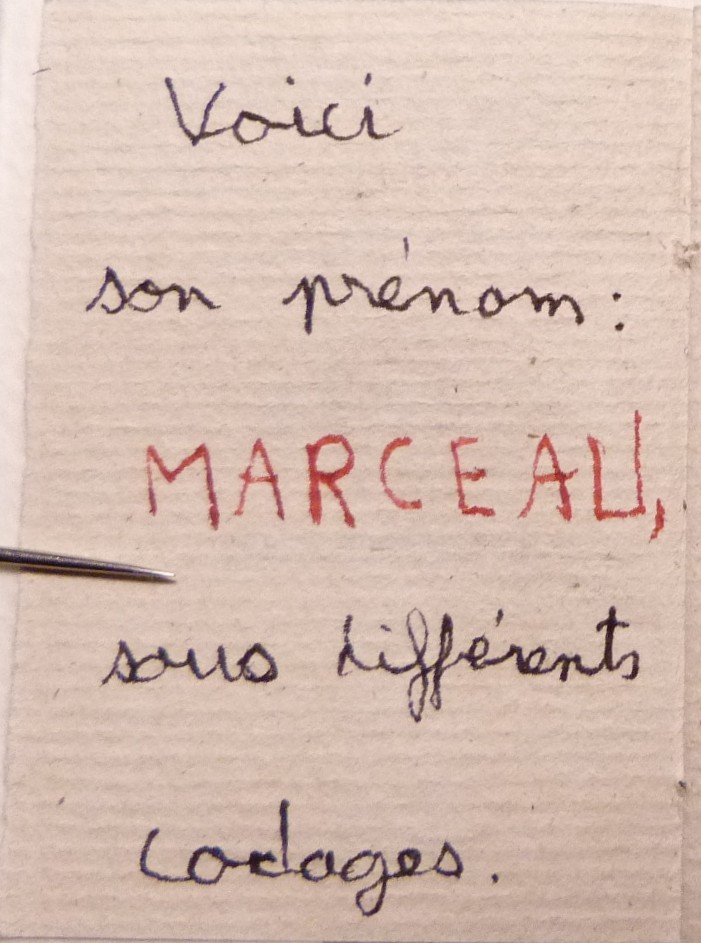 Voici
son prénom:
MARCEAU,
sous différents
codages.